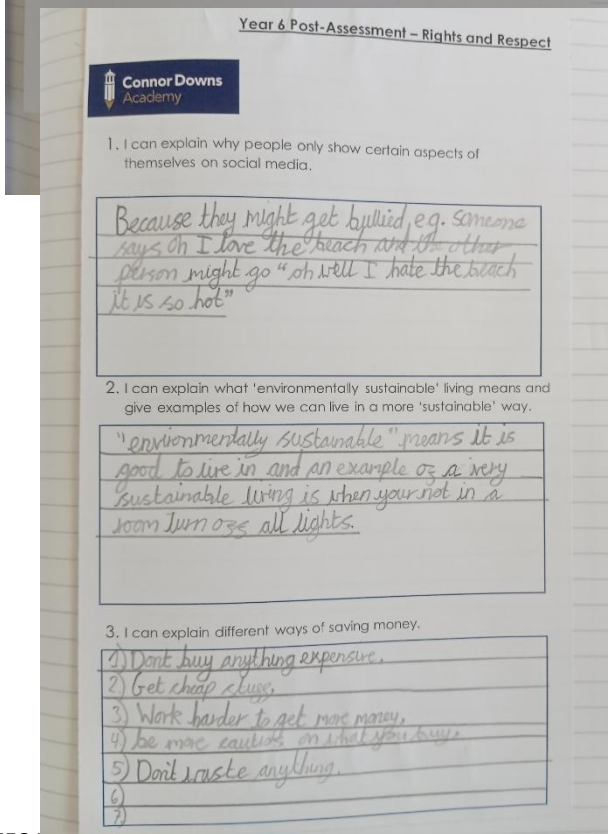 Year 6 Post-Assessment – Rights and Respect
Connor Downs
Academy
1. I can explain why people only show certain aspects of
themselves on social media.
Because they might get bullied, e.g. someone
says oh I love the beach and the other
person might go "oh well I hate the beach
it is so hot"
2. I can explain what 'environmentally sustainable' living means and
give examples of how we can live in a more 'sustainable' way.
"environmentally sustainable" means it is
good to live in and an example of a very
sustainable living is when your not in a
room Turn off all lights.
3. I can explain different ways of saving money.
1) Dont buy anything expensive.
2) Get cheap stuff.
3) Work harder to get more money.
4) be more on what you buy.
5) Don't waste anything.
6)
7)